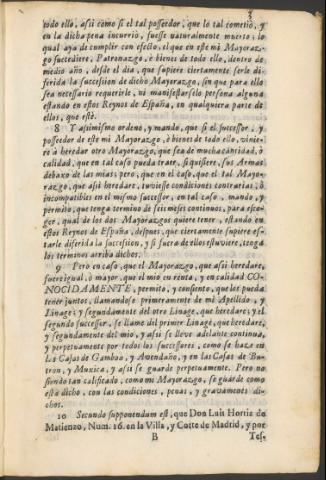 3
todo ello, assi como si el tal posseedor, que lo tal cometiò, y
en la dicha pena incurrio, fuesse naturalmente muerto, lo
qual aya de cumplir con efecto, el que en este mi Mayoraz-
go succediere, Patronazgo, è bienes de todo ello, dentro de
medio año, desde el dia, que supiere ciertamente serle di-
ferida la succession de dicho Mayorazgo, sin que para ello
sea necessario requerirle, ni manifestarselo persona alguna
estando en estos Reynos de España, en qualquiera parte de
ellos, que estè.
8 Y assimismo ordeno, y mando, que si el successor, y
posseedor de este mi Mayorazgo, è bienes de todo ello, vinie-
re à heredar otro Mayorazgo, que sea de mucha cantidad, ò
calidad, que en tal caso pueda traer, si quisiere, sus Armas
debaxo de las mias: pero, que en el caso, que el tal Mayo-
razgo, que assi heredare, tuviesse condiciones contrarias, ò
incompatibles en el mismo successor, en tal caso, mando, y
permito, que tenga termino de seis meses continuos, para esco-
ger, qual de los dos Mayorazgos quiere tener, estando en
estos Reynos de España, despues, que ciertamente supiere es-
tarle diferida la succession, y si fuera de ellos estuviere, tenga
los terminos arriba dichos.
9 Pero en caso, que el Mayorazgo, que assi heredare,
fuere igual, ò mayor, que el mio en renta, y en calidad CO-
NOCIDAMENTE, permito, y consiento, que los pueda
tener juntos, llamandose primeramente de mi Apellido, y
Linage; y segundamente del otro Linage, que heredare; y el
segundo successor, se llame del primer Linage, que heredare,
y segundamente del mio, y assi se lleve adelante continua,
y perpetuamente por todos los successores, como se haze en
La Casas de Gamboa, y Avendaño, y en las Casas de Bu-
tròn, y Muxica, y assi se guarde perpetuamente. Pero no
siendo tan calificado, como mi Mayorazgo, se guarde como
està dicho, con las condiciones, penas, y gravamenes di-
chos.
10 Secundo supponendum est, que Don Luis Hortiz de
Matienzo, Num. 16. en la Villa, y Corte de Madrid, y por
B Tes-